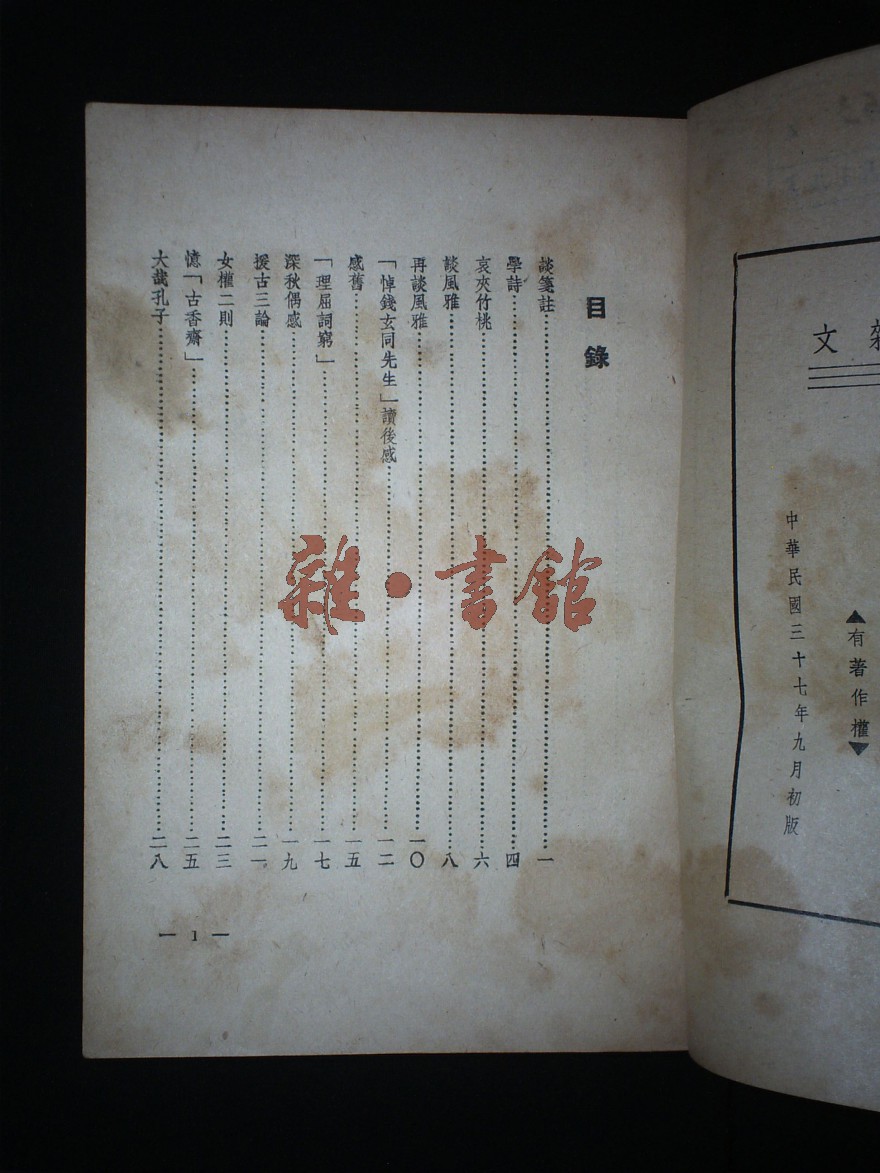 目錄
談箋註……一
學詩……四
哀夾竹桃……六
談風雅……八
再談風雅……一〇
「悼錢玄同先生」讀後感……一二
感舊……一五
「理屈詞窮」……一七
深秋偶感……一九
援古三論……二一
女權二則……二三
憶「古香齋」……二五
大哉孔子……二八
— 1 —
雜·書館
文
▲有著作權▼
中華民國三十七年九月初版